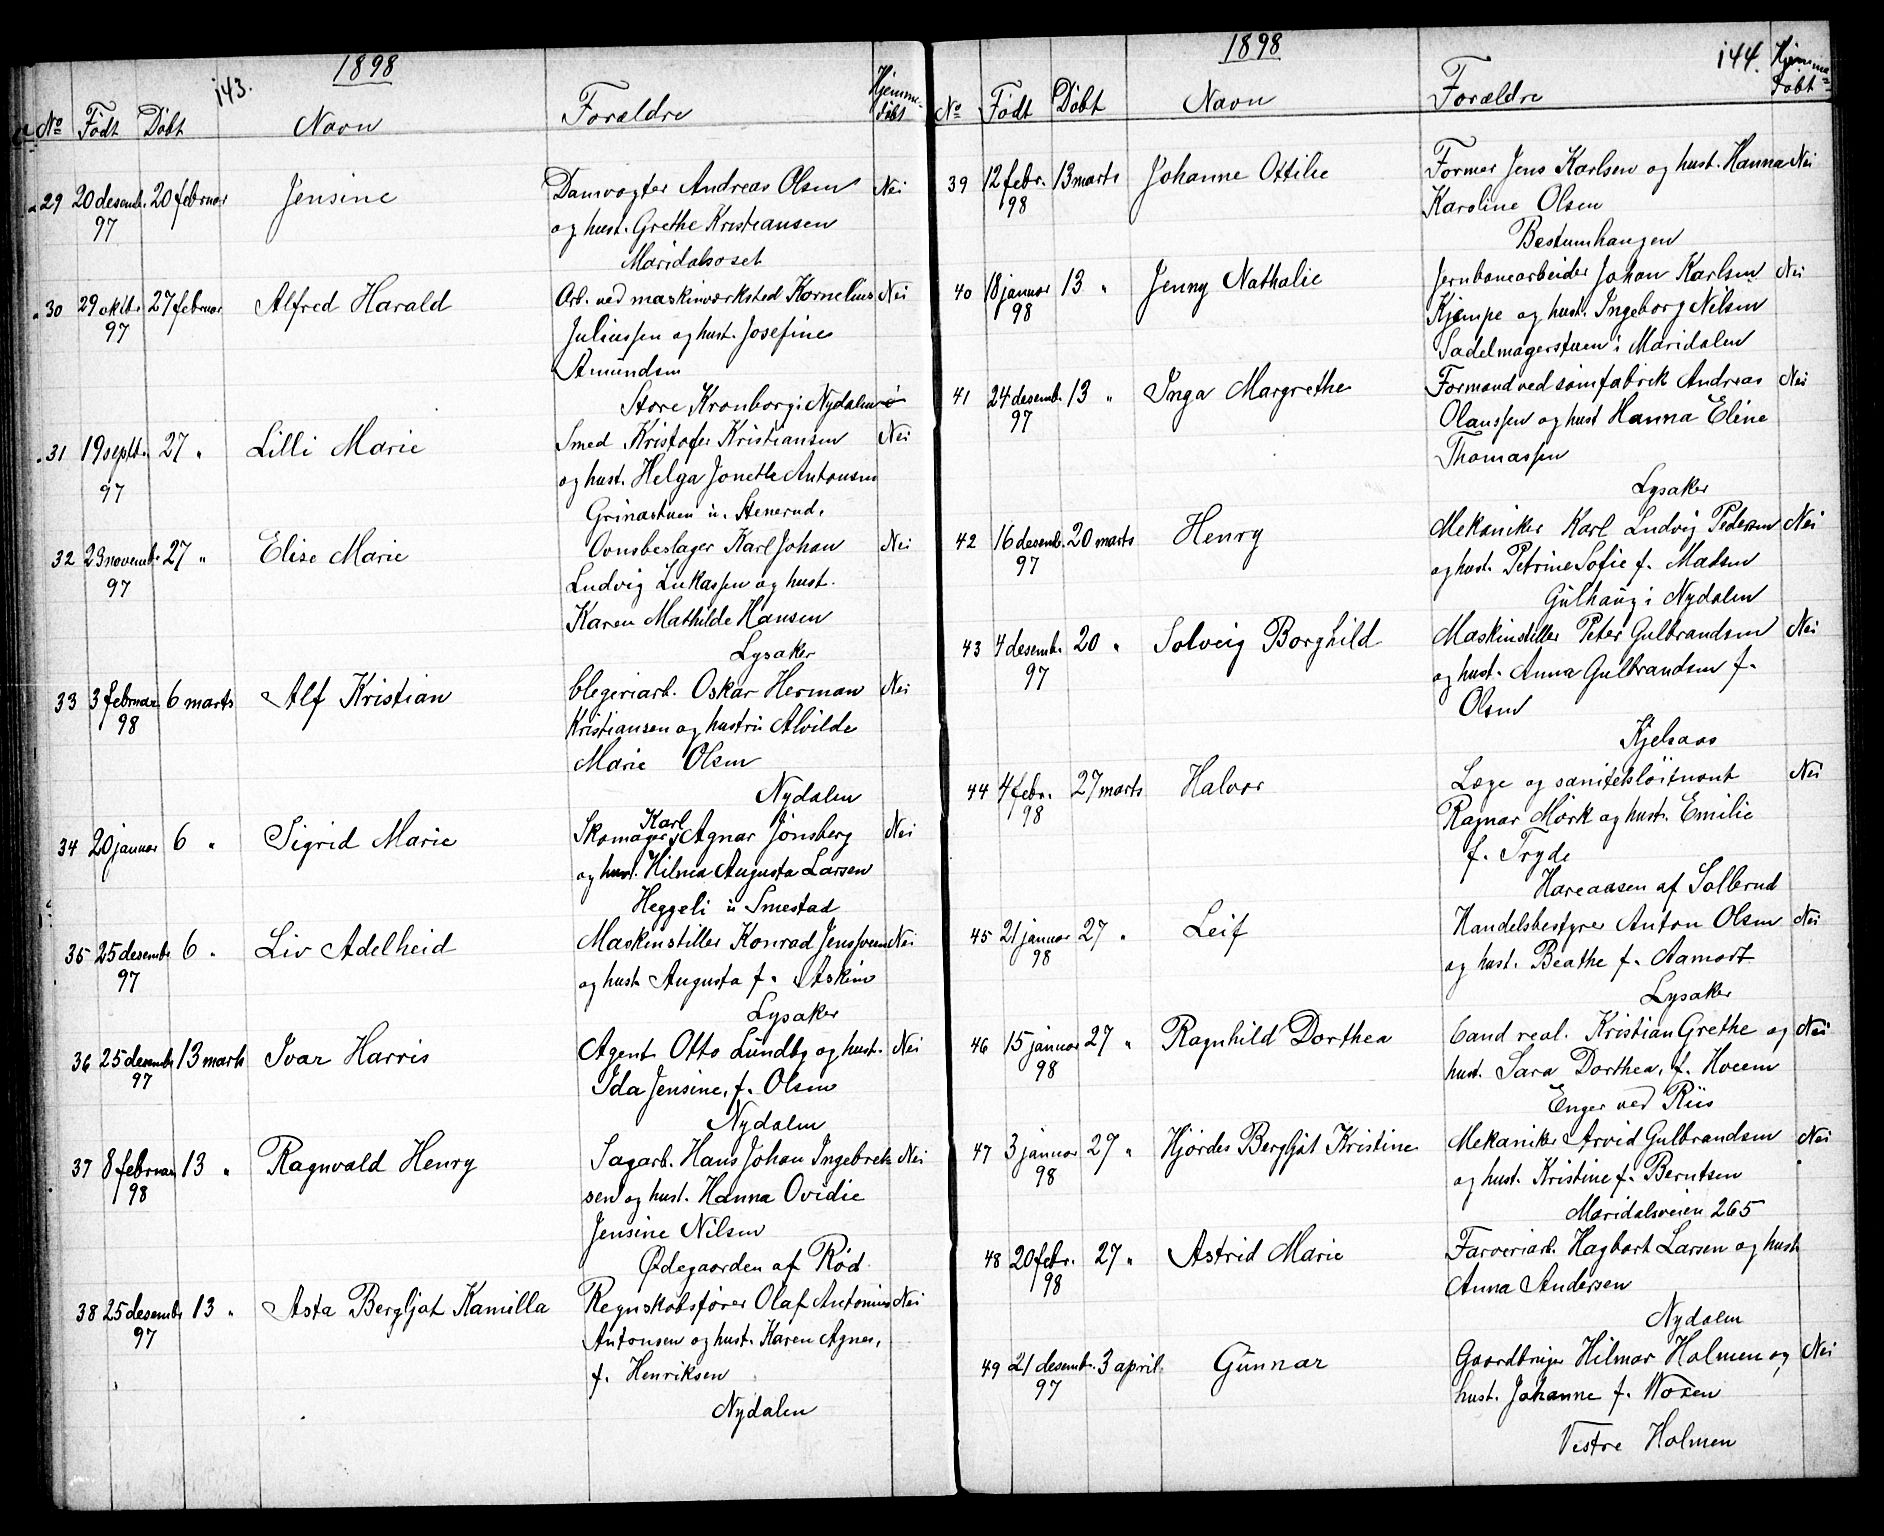 143.
1898
No Født Døbt Navn Forældre Hjemme-
døbt
29 20 desemb. 20 februar Jensine Damvogter Andreas Olsen Nei
97 og hust. Grethe Kristiansen
Maridalsoset
30 29 oktbr. 27 februar Alfred Harald Arb. ved maskinværksted Kornelius Nei
97 Juliussen og hust. Josefine
Amundsen
Store Kronborg i Nydalen
31 19 septb. 27 " Lilli Marie Smed Kristofer Kristiansen Nei
97 og hust. Helga Jonette Antonsen
Grinastuen u. Stenerud.
32 23 novemb. 27 " Elise Marie Ovnsbeslager Karl Johan Nei
97 Ludvig Lukassen og hust.
Karen Mathilde Hansen
Lysaker
33 3 februar 6 marts Alf Kristian blegeriarb. Oskar Herman Nei
98 Kristiansen og hustru Alvilde
Marie Olsen
Nydalen
34 20 januar 6 " Sigrid Marie Skomager Karl Agnar Jonsberg Nei
og hust. Hilma Augusta Larsen
Heggeli u Smestad
35 25 desemb. 6 " Liv Adelheid Maskinstiller Konrad Jenssveen Nei
97 og hust. Augusta f. Askim
Lysaker
36 25 desemb. 13 marts Ivar Harris Agent Otto Lundby og hust. Nei
97 Ida Jensine, f. Olsen
Nydalen
37 8 februar 13 " Ragnvald Henry Sagarb. Hans Johan Ingebret- Nei
98 sen og hust. Hanna Ovidie
Jensine Nilsen
Ødegaarden af Rød
38 25 desemb. 13 " Asta Bergljot Kamilla Regnskabsfører Olaf Antonius Nei
97 Antonsen og hust. Karen Agnes,
f. Henriksen
Nydalen
1898
144.
No Født Døbt Navn Forældre Hjemme-
døbt
39 12 febr. 13 marts Johanne Ottilie Former Jens Karlsen og hust. Hanna Nei
98 Karoline Olsen
Bestumhaugen
40 18 januar 13 " Jenny Nathalie Jernbanearbeider Johan Karlsen Nei
98 Kjempe og hust. Ingeborg Nilsen
Sadelmagerstuen i Maridalen
41 24 desemb. 13 " Inga Margrethe Formand ved sømfabrik Andreas Nei
97 Olaussen og hust Hanna Eline
Thomassen
Lysaker
42 16 desemb. 20 marts Henry Mekaniker Karl Ludvig Pedersen Nei
97 og hust. Petrine Sofie f. Madsen
Gulhaug i Nydalen
43 4 desemb. 20 " Solveig Borghild Maskinstiller Peter Gulbrandsen Nei
97 og hust. Anna Gulbrandsen f.
Olsen
Kjelsaas
44 4 febr. 27 marts Halvor Læge og sanitetsløitnant Nei
98 Ragnar Mörk og hust. Emilie
f. Tryde
Hareaasen af Sollerud
45 21 januar 27 " Leif Handelsbestyrer Anton Olsen Nei
98 og hust. Beathe f. Aamodt
Lysaker
46 15 januar 27 " Ragnhild Dorthea Cand real. Kristian Grethe og Nei
98 hust. Sara Dorthea, f. Hveem
Enger ved Riis
47 3 januar 27 " Hjördes Bergljot Kristine Mekaniker Arvid Gulbrandsen Nei
98 og hust. Kristine f. Berntsen
Maridalsveien 265
48 20 febr. 27 " Astrid Marie Farveriarb. Hagbart Larsen og hust.
98 Anna Andersen
Nydalen
49 21 desemb. 3 april. Gunnar Gaardbruger Hilmar Holmen og Nei
97 hust. Johanne f. Woxen
Vestre Holmen